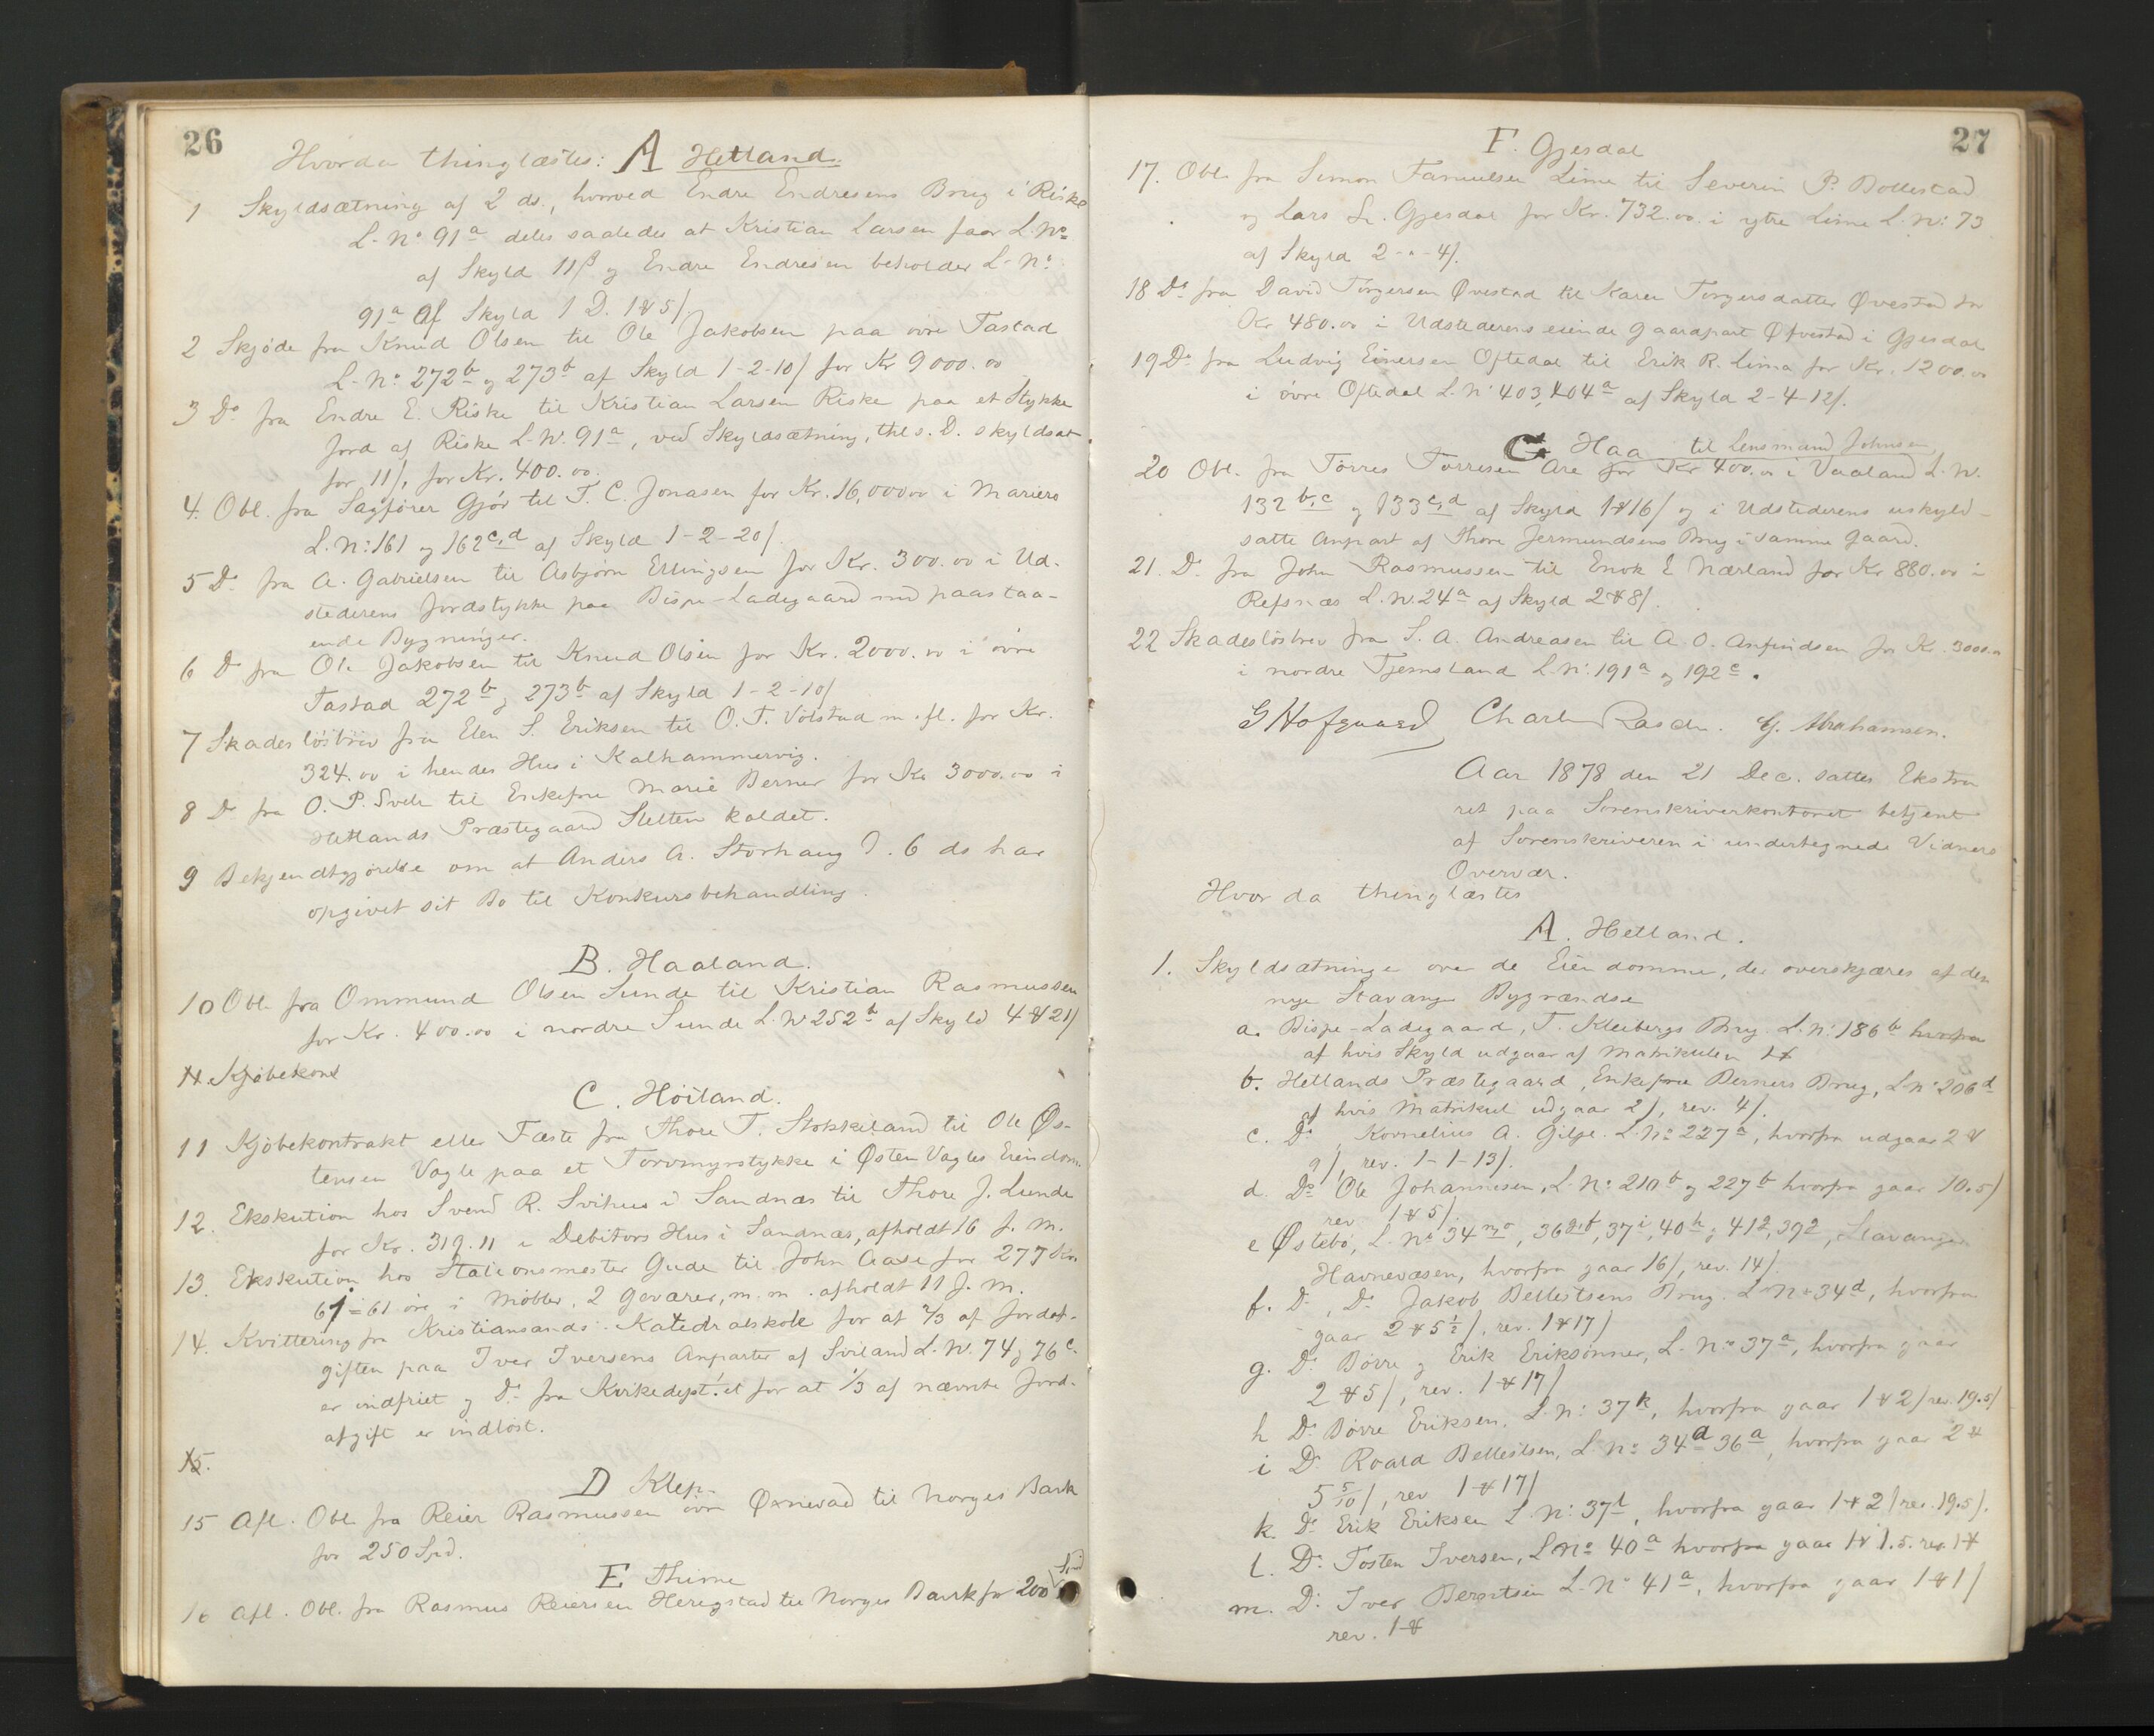 26
Hvorda thinglæstes: A Hetland.
1 Skyldsætning af 2 ds., hvorved Endre Endresens Brug i Riske
L. No 91a deles saaledes at Kristian Larsen faar L. No
af Skyld 11β og Endre Endresen beholder L. No
91a af Skyld 1 D. 1 ꝟ 5/
2 Skjøde fra Knud Olsen til Ole Jakobsen paa øvre Tastad
L. No 272b og 273b af Skyld 1-2-10/ for Kr 9000.00
3 Do fra Endre E. Riske til Kristian Larsen Riske paa et Stykke
Jord af Riske L. No. 91a, ved Skyldsætning, thl s. D. skyldsat
for 11/, for Kr. 400.00.
4. Obl. fra Sagfører Gjør til T. C. Jonasen for Kr. 16,000.00 i Mariero
L. No: 161 og 162c,d af Skyld 1-2-20/
5 Do fra A. Gabrielsen til Asbjørn Ellingsen for Kr. 300.00 i Ud-
stederens Jordstykke paa Bispe-Ladegaard med paastaa-
ende Bygninger.
6 Do fra Ole Jakobsen til Knud Olsen for Kr. 2000.00 i øvre
Tastad 272b og 273b af Skyld 1-2-10/
7 Skadesløsbrev fra Elen S. Eriksen til O. T. Volstad m. fl. for Kr.
324.00 i hendes Hus i Kalhammervig.
8 Do fra O. P. Svele til Enkefru Marie Berner for Kr 3000.00 i
Hetlands Præstegaard Sletten kaldet.
9 Bekjendtgjørelse om at Anders A. Storhaug d. 6 ds har
opgivet sit Bo til Konkursbehandling.
B. Haaland.
10 Obl. fra Ommund Olsen Sunde til Kristian Rasmussen
for Kr. 400.00 i nordre Sunde L. No 252b af Skyld 4 ꝟ 21/
11. Kjøbekont
C. Høiland.
11 Kjøbekontrakt eller Fæste fra Thore T. Stokkeland til Ole Øs-
tensen Vagle paa et Torvmyrstykke i Østen Vagles Eiendom.
12. Ekskution hos Svend R. Svihus i Sandnæs til Thore J. Lunde
for Kr. 319.11 i Debitors Hus i Sandnæs, afholdt 16 f. M.
13. Ekskution hos Stationsmester Gude til John Aase for 277 Kr.
61 = 61 øre i Møbler, 2 Geværer, m. m. afholdt 11 f. M.
14. Kvittering fra Kristiansands Katedralskole for at 2/3 af Jordaf-
giften paa Iver Iversens Anparter af Sviland L. No. 74 og 76c.
er indfriet og Do fra Kirkedept.et for at 1/3 af nævnte Jord-
afgift er indløst.
15.
D Klep.
15 Afl. Obl fra Reier Rasmussen øvre Øxnevad til Norges Bank
for 250 Spd.
E Thime
16 Afl. Obl. fra Rasmus Reiersen Herigstad til Norges Bank for 200 Spd
27
F. Gjesdal
17. Obl. fra Simon Tamuelsen Lime til Severin P. Bollestad
og Lars L. Gjesdal for Kr. 732.00 i ytre Lime L. No: 73
af Skyld 2-"-4/.
18 Do fra David Torgersen Øvestad til Karen Torgersdatter Øvestad for
Kr 480.00 i Udstederens eiende Gaardpart Øfvestad i Gjesdal
19 Do fra Ludvig Einersen Oftedal til Erik R. Lima for Kr. 1200.00
i øvre Oftedal L. No 403, 404a af Skyld 2-4-12/.
G. Haa til Lensmand Johnsen
20 Obl. fra Tørres Tørresen Are for Kr 400.00 i Vaaland L. No.
132b,c og 133c,d af Skyld 1 ꝟ 16/ og i Udstederens uskyld-
satte Anpart af Thore Jermundsens Brug i samme Gaard.
21. Do fra John Rasmussen til Enok E Nærland for Kr 880.00 i
Refsnæs L. No. 24a af Skyld 2 ꝟ 8/.
22 Skadesløsbrev fra S. A. Andreasen til A. O. Anfindsen for Kr. 3000.00
i nordre Tjemsland L. No: 191a og 192c.
G Hofgaard Charles Rasch. G. Abrahamsen.
Aar 1878 den 21 Dec. sattes Ekstra
ret paa Sorenskriverkontoret betjent
af Sorenskriveren i undertegnede Vidners
Overvær.
Hvor da thinglæstes
A. Hetland.
1. Skyldsætninge over de Eiendomme, der overskjæres af den
nye Stavanger Bygrændse
a. Bispe-Ladegaard, T. Kleibergs Brug. L. No: 186b hvorfra
af hvis Skyld udgaar af Matrikulen 1 ꝟ
b. Hetlands Præstegaard, Enkefrue Berners Brug, L. No 206d
af hvis Matrikul udgaar 2/, rev. 4/.
c. Do, Kornelius A. Gilje. L. No 227a, hvorfra udgaar 2 ꝟ
9/, rev. 1-1-13/.
d. Do Ole Johannesen, L. No: 210b og 227b hvorfra gaar 10.5/
rev 1 ꝟ 5/.
e Østebø, L. No 34n,o, 36d,f, 37i, 40h og 412, 392, Stavanger
Havnevæsen, hvorfra gaar 16/, rev. 14/.
f. Do, Do Jakob Bellestsens Brug. L. No 34d, hvorfra
gaar 2 ꝟ 5½/, rev. 1 ꝟ 17/
g. Do Børre og Erik Erikssønner, L. No 37a, hvorfra gaar
2 ꝟ 5/, rev. 1 ꝟ 17/
h Do Børre Eriksen. L. No: 37k, hvorfra gaar 1 ꝟ 2/ rev. 19.5/
i Do Roald Bellestsen, L. No 34a 36a, hvorfra gaar 2 ꝟ
5 5/10/, rev 1 ꝟ 17/
k. Do Erik Eriksen L. No: 37l, hvorfra gaar 1 ꝟ 2/ rev. 19.5/.
l. Do Tosten Iversen, L No 40a hvorfra gaar 1 ꝟ 1.5. rev. 1 ꝟ
m. Do Iver Berentsen L. No 41a, hvorfra gaar 1 ꝟ 1/
rev. 1 ꝟ